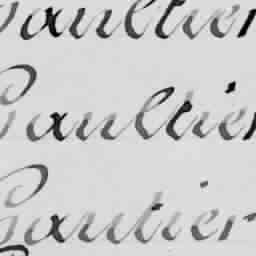 Gaultier
Gaultier
Gautier